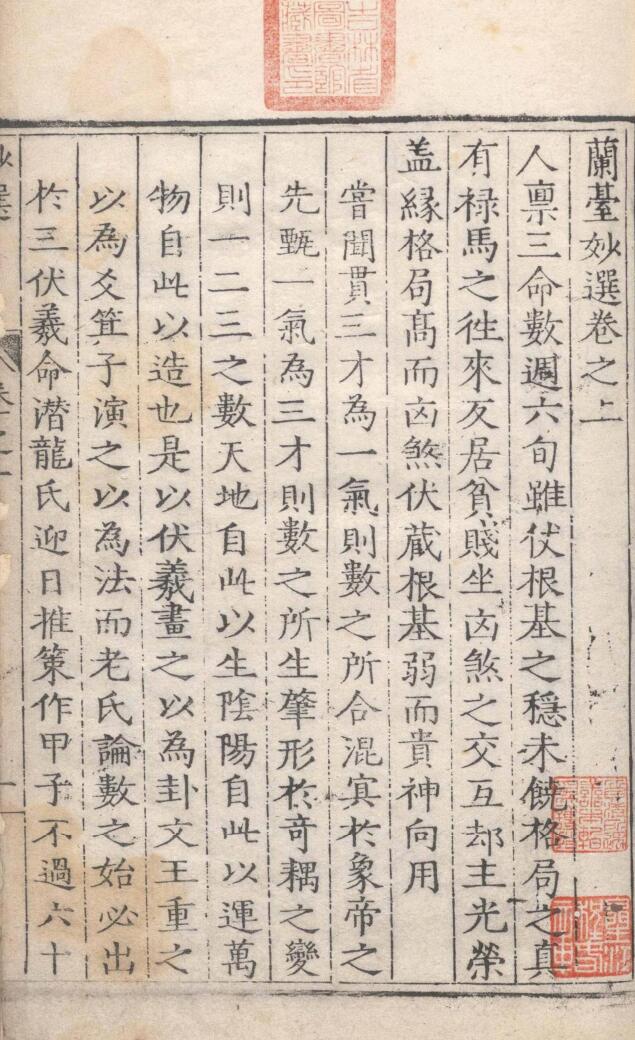 蘭臺妙選卷之上
人禀三命數週六旬雖仗根基之穩未饒格局之真
有禄馬之徃來反居貧賤坐凶煞之交互却主光榮
盖緣格局髙而凶煞伏蔵根基弱而貴神向用
嘗聞貫三才為一氣則數之所合混冥於象帝之
先甄一氣為三才則數之所生肇形於竒耦之變
則一二三之數天地自此以生陰陽自此以運萬
物自此以造也是以伏羲畫之以為卦文王重之
以為爻箕子演之以為法而老氏論數之始必出
於三伏羲命潜龍氏迎日推策作甲子不過六十
吉林省圖書館藏書印